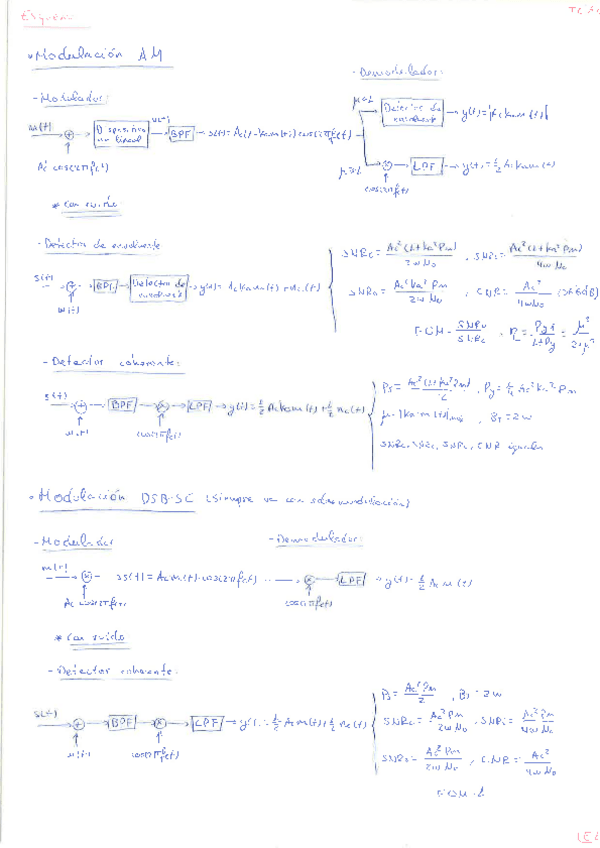 Esquema
• Modulación AM
- Demodulador:
- Modulador:
m(t)
Dispositivo no lineal
BPF
s(t) = Ac(1+kam(t))cos(2πfct)
Ac' cos(2πfct)
μ<1
Detector de envolvente
y(t) = |Ackam(t)|
μ>1
LPF
y(t) = ½ Ackam(t)
cos(2πfct)
* Con ruido
- Detector de envolvente
s(t)
w(t)
BPF
Detector de envolvente
y(t) = Ackam(t) + nc(t)
SNRc = Ac²(1+ka²Pm)/2WN0 , SNRi = Ac²(1+ka²Pm)/4WN0
SNRo = Ac²ka²Pm/2WN0 , CNR = Ac²/4WN0
FOM = SNRo/SNRc
- Detector coherente:
s(t)
w(t)
BPF
cos(2πfct)
LPF
y(t) = ½ Ackam(t) + ½ nc(t)
Ps = Ac²(1+ka²Pm)/2 , Py = ¼ Ac²ka²Pm
μ = |kam(t)|max , BT = 2W
SNRc, SNRi, SNRo, CNR iguales
• Modulación DSB-SC (siempre va con sobremodulación)
- Modulador
- Demodulador:
m(t)
s(t) = Acm(t)·cos(2πfct)
LPF
y(t) = ½ Acm(t)
Ac cos(2πfct)
cos(2πfct)
* Con ruido
- Detector coherente:
s(t)
w(t)
BPF
cos(2πfct)
LPF
y(t) = ½ Acm(t) + ½ nc(t)
Ps = Ac²Pm/2 , BT = 2W
SNRc = Ac²Pm/2WN0 , SNRi = Ac²Pm/4WN0
SNRo = Ac²Pm/2WN0 , CNR = Ac²/4WN0
FOM = 1